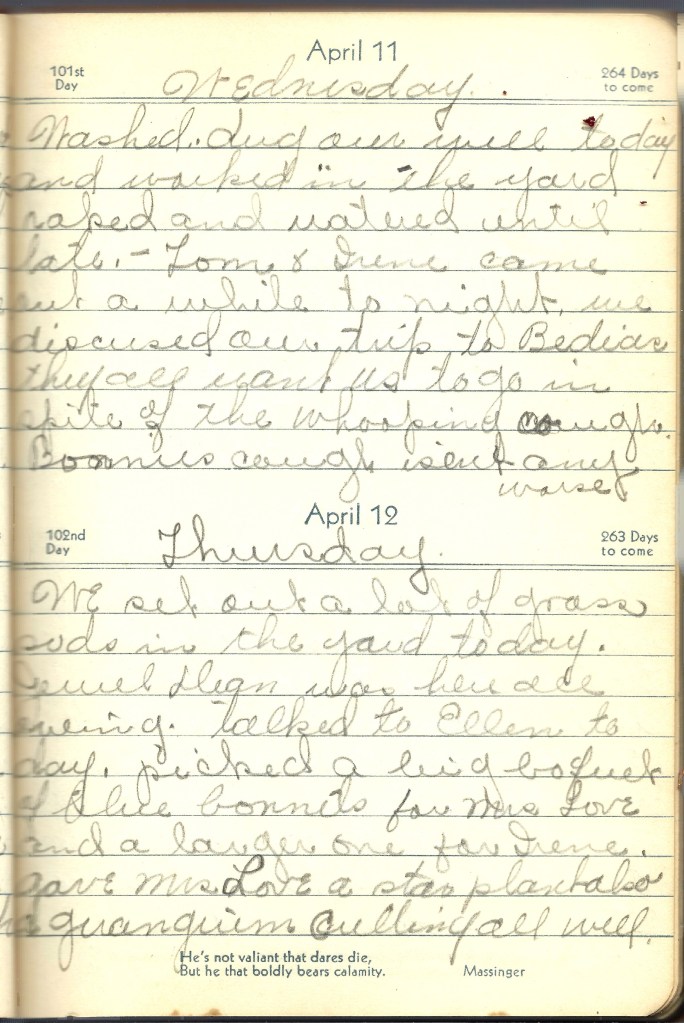 April 11
101st Day
264 Days to come
Wednesday.
Washed. dug our well today
and worked in the yard
raked and watered until
late. - Tom & Irene came
out a while to night, we
discused our trip to Bedias
they all want us to go in
spite of the whooping cough.
Bonnies cough isent any
worse
April 12
102nd Day
263 Days to come
Thursday.
We set out a lot of grass
sods in the yard today.
Jewel was here all
evening. talked to Ellen to
day. picked a big boquet
of blue bonnets for Mrs Love
and a larger one for Irene.
gave Mrs Love a star plant also
a all well.
He's not valiant that dares die,
But he that boldly bears calamity.
Massinger